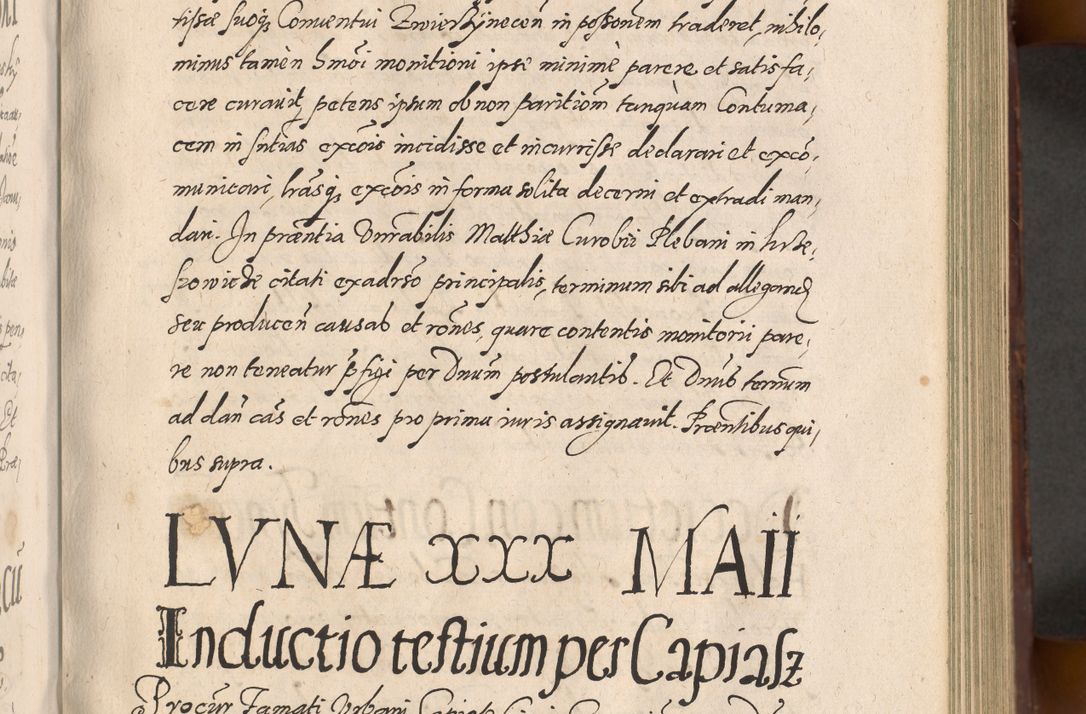 tissæ suoq; Conventui Zwierzÿnecen̄ in possonem traderet, nihilo,
minus tamen hmōi monitioni ipse minimè parere et satisfa,
cere curavit, petens ipsum ob non paritiom̄ tanquàm Contuma,
cem in sn̄tias excōis incidisse et incurrisse declarari et excō,
municari, lrāsq; excōis in forma solita decerni et extradi man,
dari. In præntia Vnrabilis Matthiæ Curobii Plebani in
citati ex adrso principalis, terminum sibi ad allegand
seu producen̄ causas et rōnes, quare contentis monitorii pare,
re non teneatur p̄figi per Dnum̄ postulantis. Et Dnūs termum
ad dan̄ cās et rōnes pro prima iuris assignavit. Præntibus qui,
bus supra.
LVNÆ XXX MAII
Inductio testium per Capiasz
Procur̄ Famati Vrbani